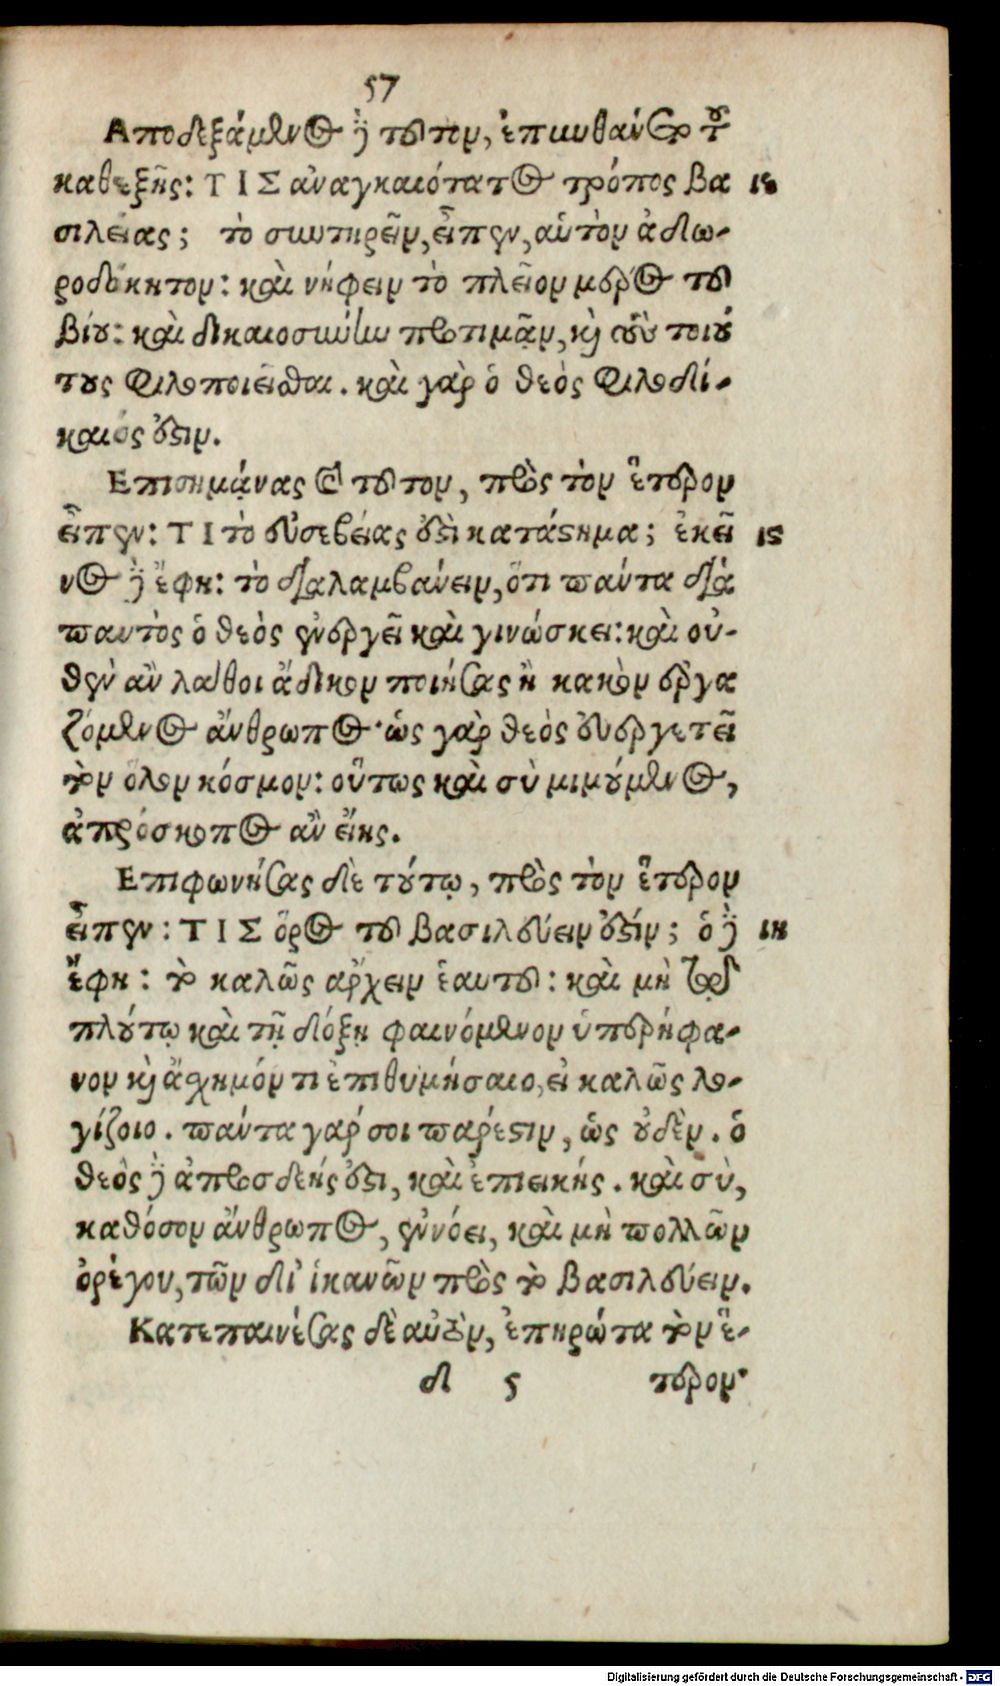 57
Αποδεξάμενος δὲ τοῦτον, ἐπυνθάνετο τοῦ
καθεξῆς: ΤΙΣ ἀναγκαιότατος τρόπος βα ιε
σιλείας; τὸ συντηρεῖν, εἶπεν, αὑτὸν ἀδω-
ροδόκητον: καὶ νήφειν τὸ πλεῖον μέρος τοῦ
βίου: καὶ δικαιοσύνην προτιμᾷν, καὶ τοὺς τοιού
τους φιλοποιεῖσθαι. καὶ γὰρ ὁ θεὸς φιλοδί-
καιός ἐστιν.
Επισημᾴνας καὶ τοῦτον, πρὸς τὸν ἕτερον
εἶπεν: ΤΙ τὸ εὐσεβείας ἐστὶ κατάστημα; ἐκεῖ ις
νος δὲ ἔφη: τὸ διαλαμβάνειν, ὅτι πάντα διὰ
παντὸς ὁ θεὸς ἐνεργεῖ καὶ γινώσκει: καὶ οὐ-
θὲν ἂν λάθοι ἄδικον ποιήσας ἢ κακὸν ἐργα
ζόμενος ἄνθρωπος· ὡς γὰρ θεὸς εὐεργετεῖ
τὸν ὅλον κόσμον: οὕτως καὶ σὺ μιμούμενος,
ἀπρόσκοπος ἂν εἴης.
Επιφωνήσας δὲ τούτῳ, πρὸς τὸν ἕτερον
εἶπεν: ΤΙΣ ὅρος τοῦ βασιλεύειν ἐστίν; ὁ δὲ ιη
ἔφη: τὸ καλῶς ἄρχειν ἑαυτοῦ: καὶ μὴ τῷ
πλούτῳ καὶ τῇ δόξῃ φαινόμενον ὑπερήφα-
νον καὶ ἄσχημόν τι ἐπιθυμήσαιο, εἰ καλῶς λο-
γίζοιο. πάντα γάρ σοι πάρεστιν, ὡς οὐδέν. ὁ
θεὸς δὲ ἀπροσδεής ἐστι, καὶ ἐπιεικής. καὶ σὺ,
καθόσον ἄνθρωπος, ἐννόει, καὶ μὴ πολλῶν
ὀρέγου, τῶν δὲ ἱκανῶν πρὸς τὸ βασιλεύειν.
Κατεπαινέσας δὲ αὐτὸν, ἐπηρώτα τὸν ἕ-
d 5 τερον·
Digitalisierung gefördert durch die Deutsche Forschungsgemeinschaft - DFG